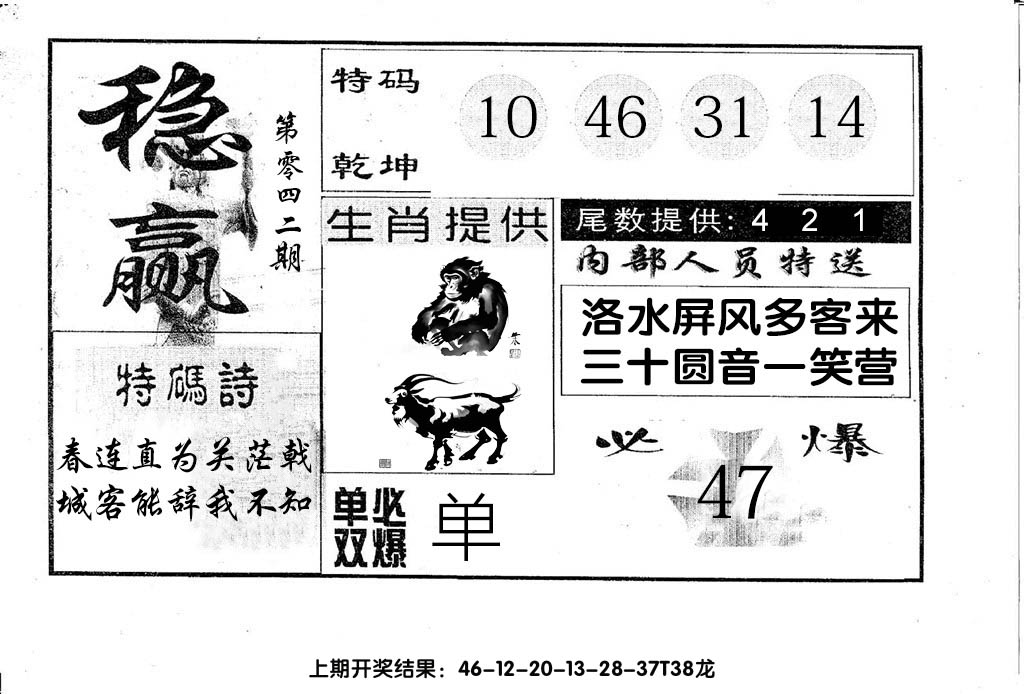 稳赢
第零四二期
特码
乾坤
10 46 31 14
生肖提供
尾数提供: 4 2 1
内部人员特送
洛水屏风多客来
三十圆音一笑营
特碼詩
春连直为关茫戟
城客能辞我不知
必爆
47
单双
必爆
单
上期开奖结果：46-12-20-13-28-37T38龙